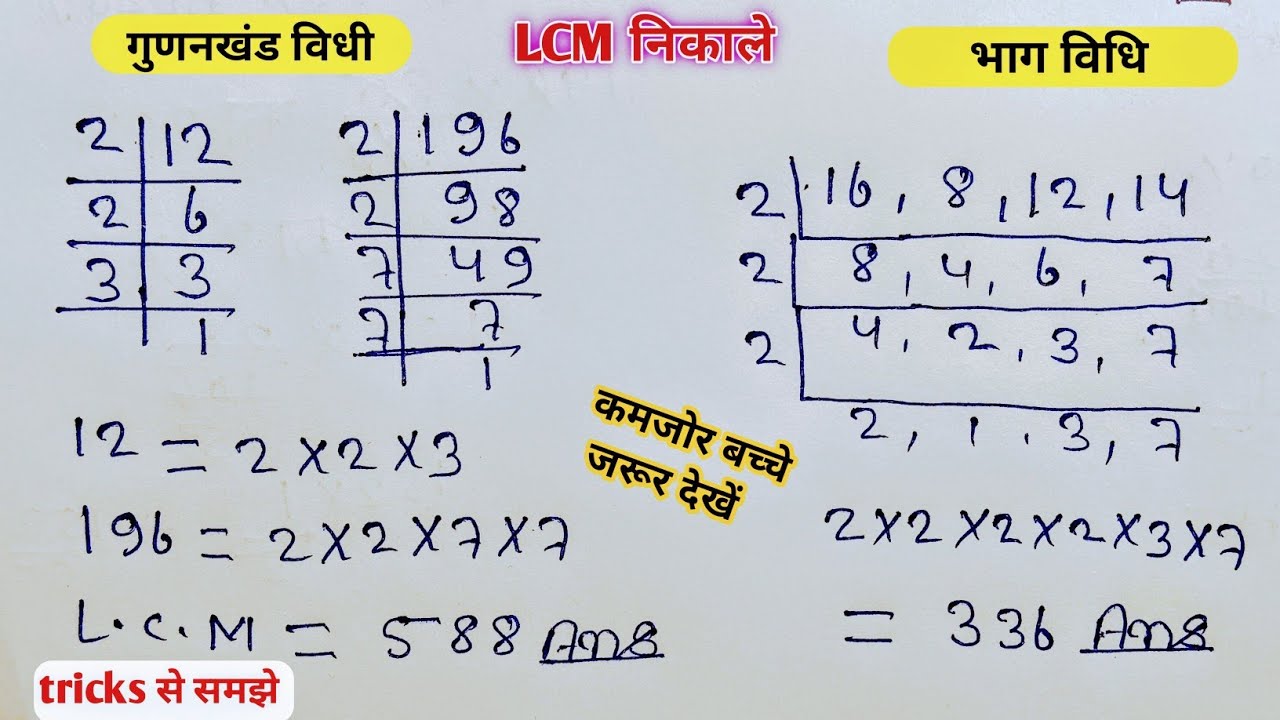 गुणनखंड विधी
LCM निकाले
भाग विधि
2 | 12
2 | 6
3 | 3
1
2 | 196
2 | 98
7 | 49
7 | 7
1
12 = 2×2×3
196 = 2×2×7×7
L.C.M = 588 Ans
कमजोर बच्चे
जरूर देखें
2 | 16, 8, 12, 14
2 | 8, 4, 6, 7
2 | 4, 2, 3, 7
2, 1, 3, 7
2×2×2×2×3×7
= 336 Ans
tricks से समझे